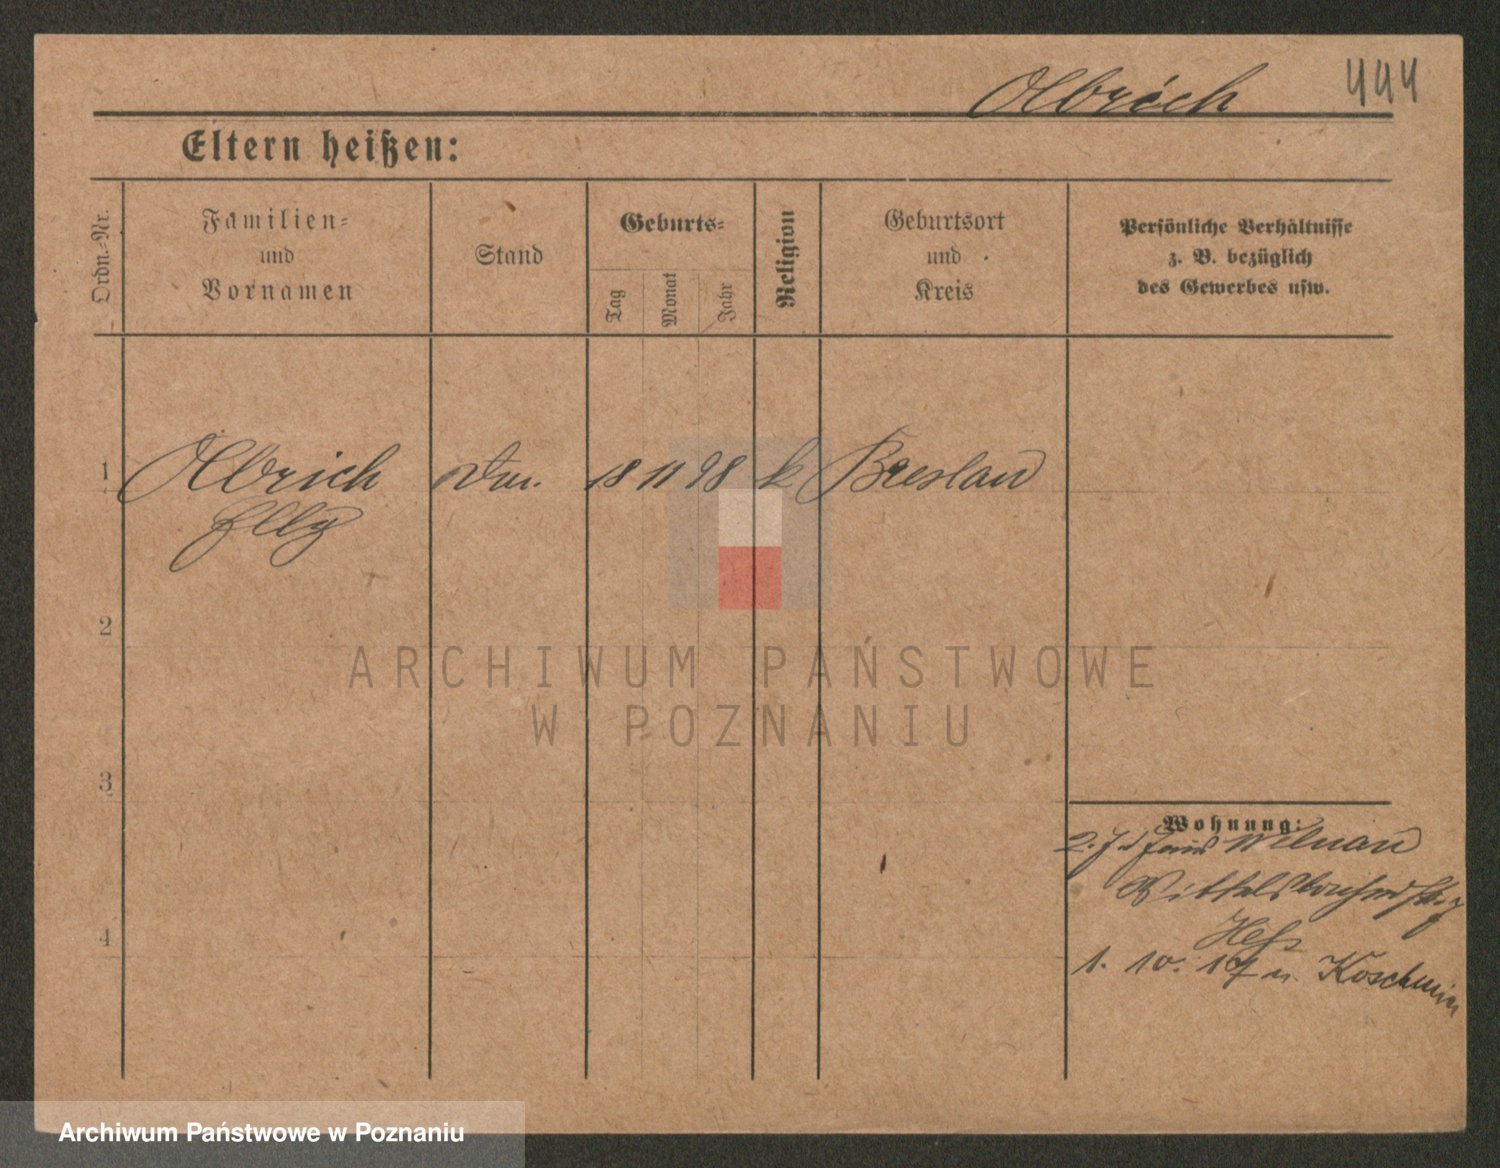 Olbrich 444
Eltern heißen:
Ordn.-Nr.
Familien-
und
Vornamen
Stand
Geburts-
Tag
Monat
Jahr
Religion
Geburtsort
und
Kreis
Persönliche Verhältnisse
z. B. bezüglich
des Gewerbes usw.
1 Olbrich 18 11 98 k Breslau
Elly
2
3
4
Wohnung:
2. Welnau
Heß
1. 10. 17 n. Koschmin
ARCHIWUM PAŃSTWOWE
W POZNANIU
Archiwum Państwowe w Poznaniu